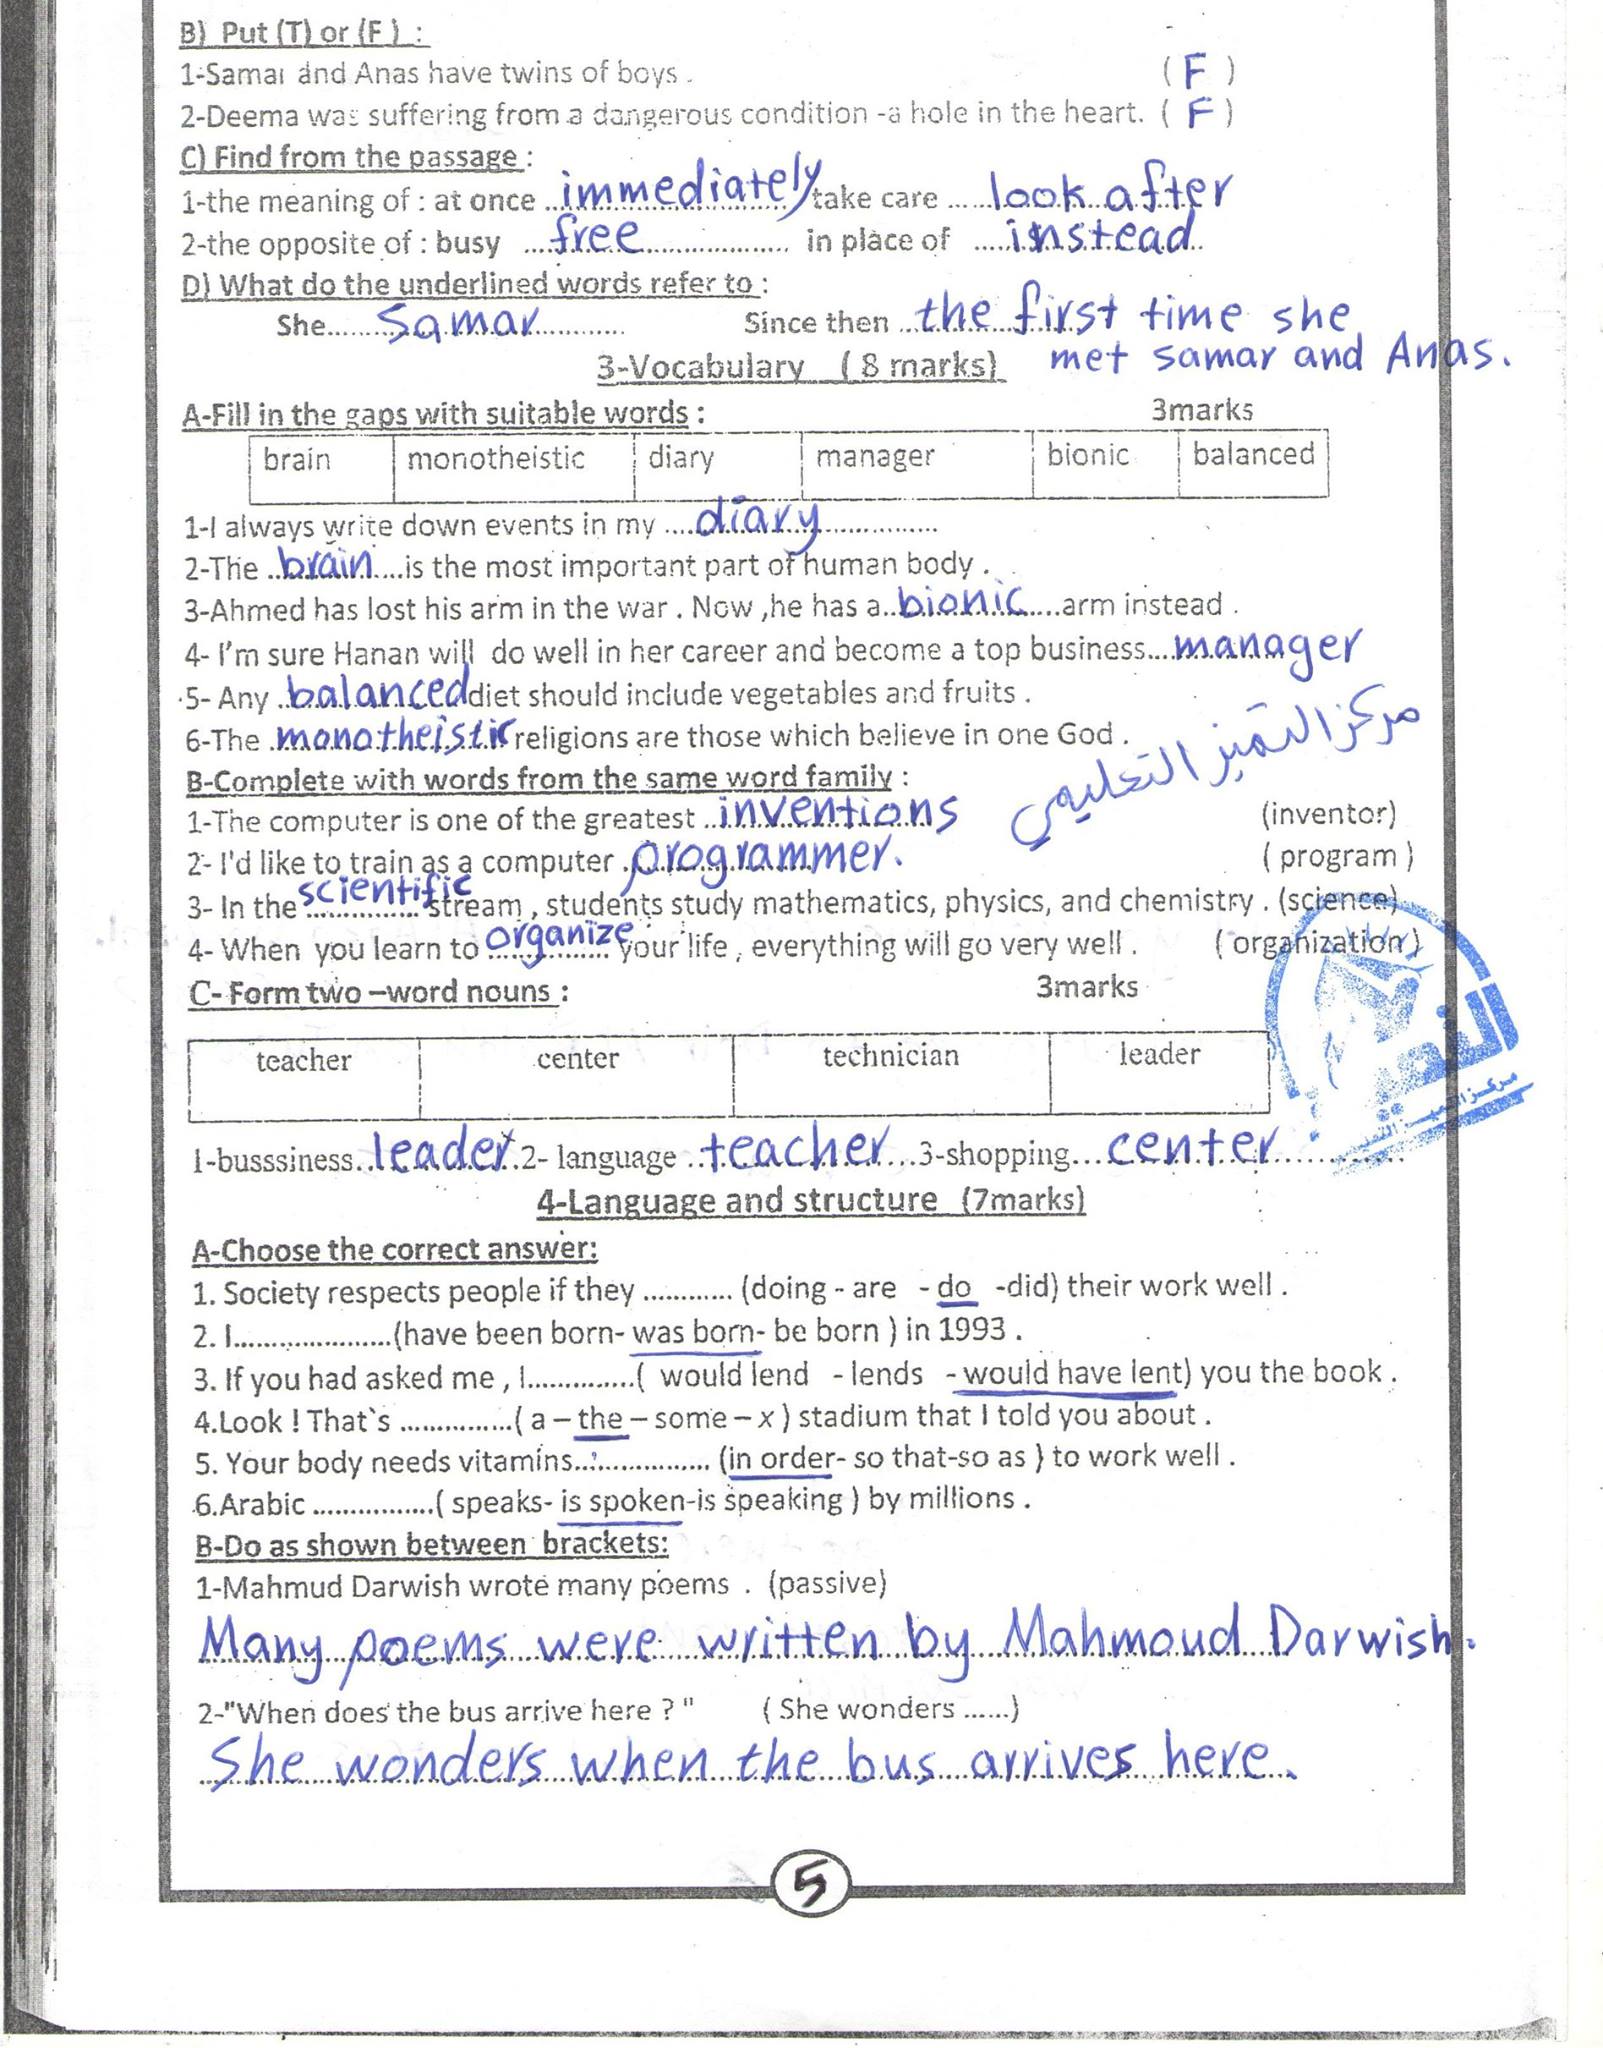 B) Put (T) or (F ) :
1-Samar and Anas have twins of boys . ( F )
2-Deema was suffering from a dangerous condition -a hole in the heart. ( F )
C) Find from the passage :
1-the meaning of : at once ...immediately... take care ......look after
2-the opposite of : busy ...free... in place of ...instead...
D) What do the underlined words refer to :
She......Samar......... Since then ...the first time she
met Samar and Anas.
3-Vocabulary ( 8 marks)
A-Fill in the gaps with suitable words : 3marks
brain monotheistic diary manager bionic balanced
1-I always write down events in my ...diary............
2-The ..brain.....is the most important part of human body .
3-Ahmed has lost his arm in the war . Now ,he has a..bionic.....arm instead .
4- I'm sure Hanan will do well in her career and become a top business...manager
5- Any ..balanced diet should include vegetables and fruits .
6-The .monotheistic religions are those which believe in one God .
مركز التميز التعليمي
B-Complete with words from the same word family :
1-The computer is one of the greatest ..inventions (inventor)
2- I'd like to train as a computer .programmer. ( program )
3- In the scientific stream , students study mathematics, physics, and chemistry . (science)
4- When you learn to organize your life , everything will go very well . ( organization )
C- Form two –word nouns : 3marks
teacher center technician leader
1-busssiness..leader..2- language ..teacher...3-shopping...center.........
4-Language and structure (7marks)
A-Choose the correct answer:
1. Society respects people if they ............ (doing - are - do -did) their work well .
2. I.....................(have been born- was born- be born ) in 1993 .
3. If you had asked me , I..............( would lend - lends - would have lent) you the book .
4.Look ! That`s ...............( a – the – some – x ) stadium that I told you about .
5. Your body needs vitamins.................. (in order- so that-so as ) to work well .
6.Arabic ................( speaks- is spoken-is speaking ) by millions .
B-Do as shown between brackets:
1-Mahmud Darwish wrote many poems . (passive)
Many poems were written by Mahmoud Darwish.
2-"When does the bus arrive here ? " ( She wonders ......)
She wonders when the bus arrives here.
5